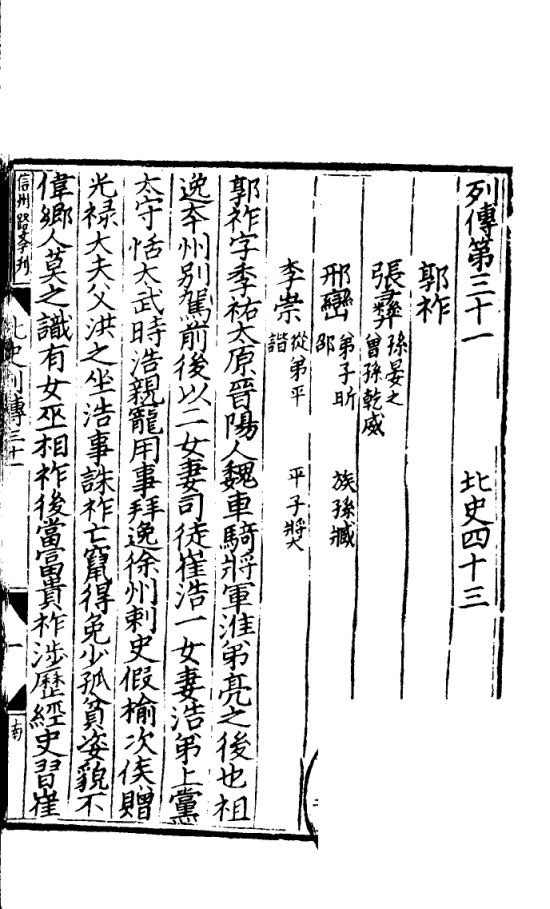 列傳第三十一　北史四十三
郭祚
張彝孫晏之曾孫乾威
邢巒弟子昕　族孫臧邵
李崇從弟平　平子奬諧
郭祚字季祐太原晉陽人魏車騎將軍淮弟亮之後也祖
逸本州別駕前後以二女妻司徒崔浩一女妻浩弟上黨
太守恬太武時浩親寵用事拜逸徐州刺史假榆次侯贈
光禄大夫父洪之坐浩事誅祚亡竄得免少孤貧姿貌不
偉鄉人莫之識有女巫相祚後當富貴祚渉歷經史習崔
信州路學刊
北史列傳三十一
一
南